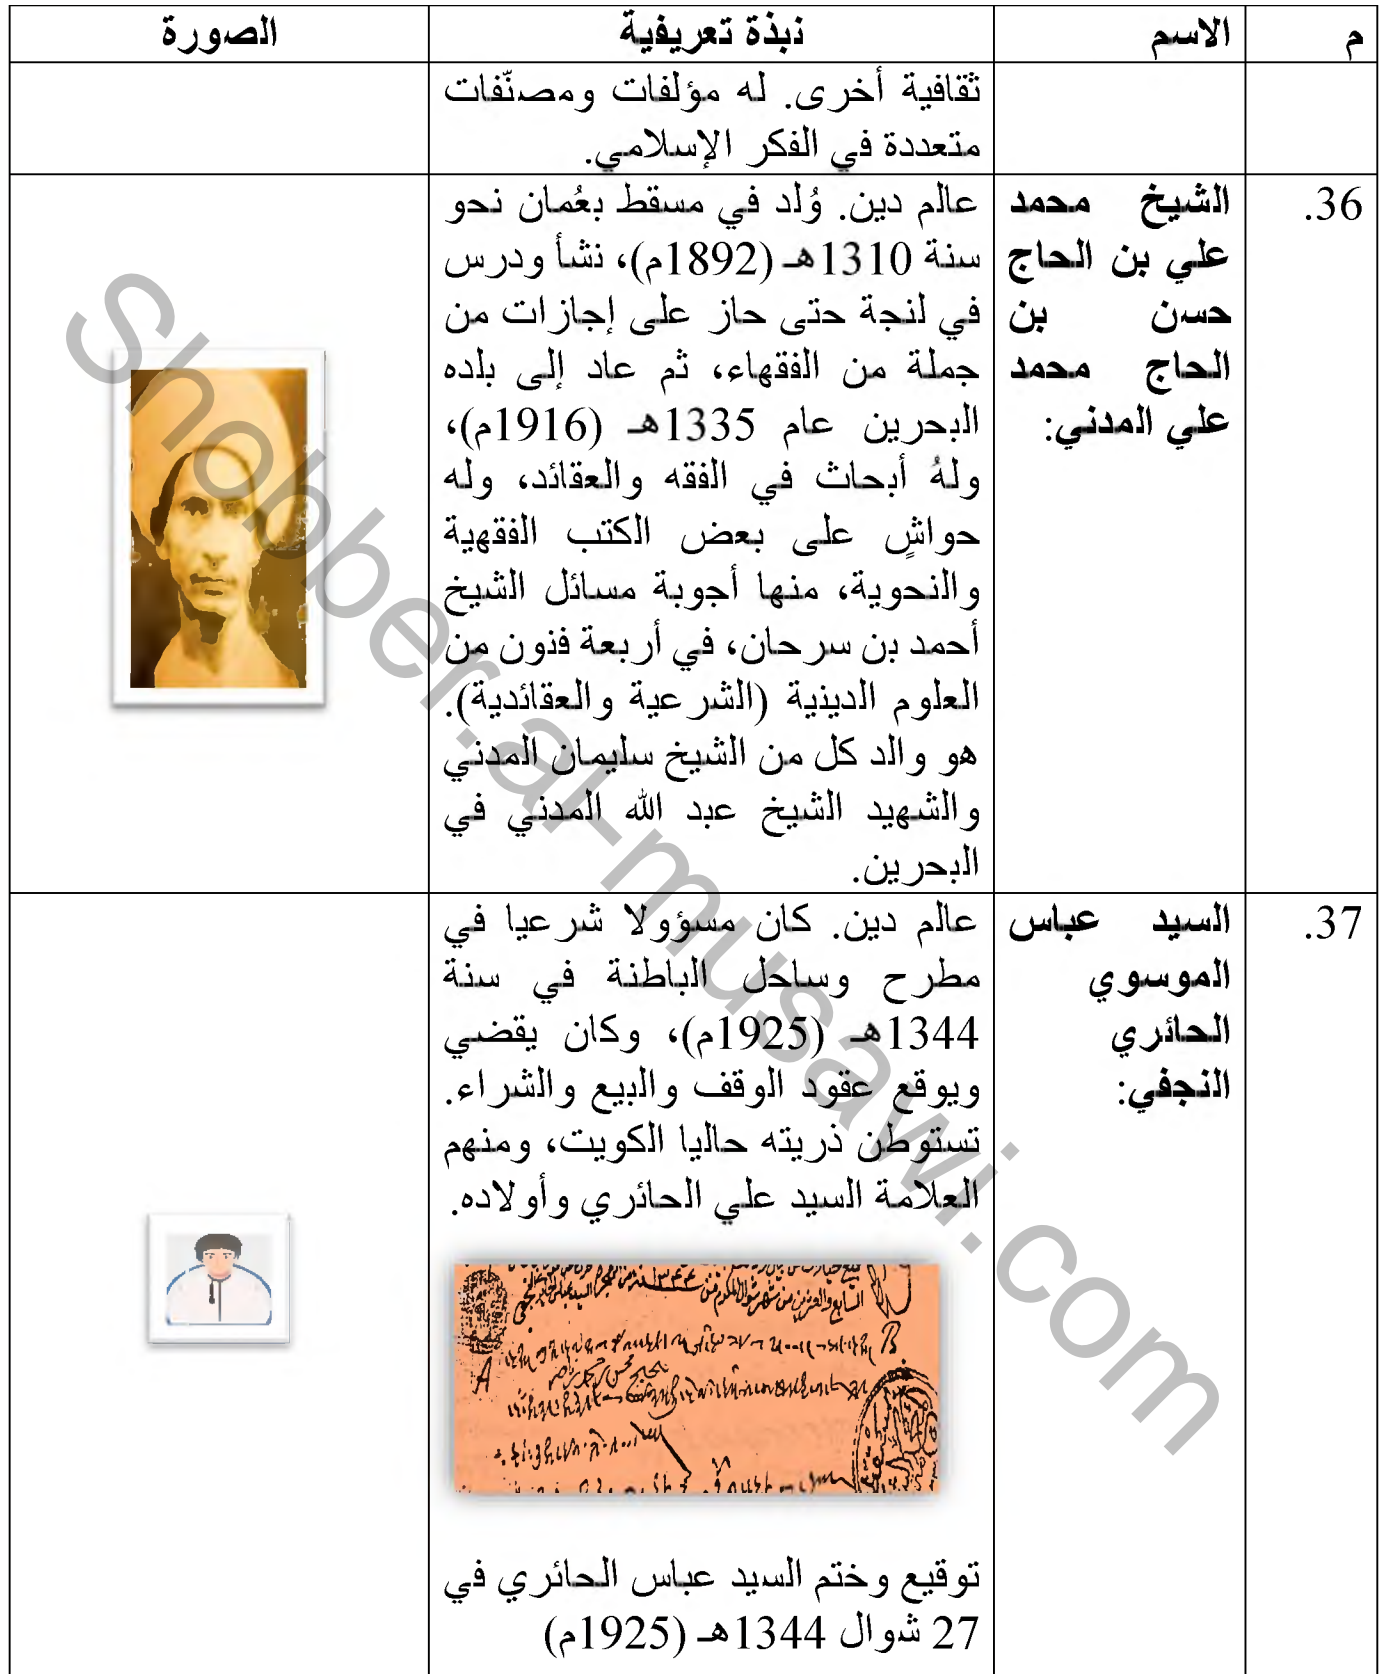 م الاسم نبذة تعريفية الصورة
ثقافية أخرى. له مؤلفات ومصنّفات
متعددة في الفكر الإسلامي.
36.
الشيخ محمد
علي بن الحاج
حسن بن
الحاج محمد
علي المدني:
عالم دين. وُلد في مسقط بعُمان نحو
سنة 1310هـ (1892م)، نشأ ودرس
في لنجة حتى حاز على إجازات من
جملة من الفقهاء، ثم عاد إلى بلده
البحرين عام 1335هـ (1916م)،
ولهُ أبحاث في الفقه والعقائد، وله
حواشٍ على بعض الكتب الفقهية
والنحوية، منها أجوبة مسائل الشيخ
أحمد بن سرحان، في أربعة فنون من
العلوم الدينية (الشرعية والعقائدية).
هو والد كل من الشيخ سليمان المدني
والشهيد الشيخ عبد الله المدني في
البحرين.
37.
السيد عباس
الموسوي
الحائري
النجفي:
عالم دين. كان مسؤولا شرعيا في
مطرح وساحل الباطنة في سنة
1344هـ (1925م)، وكان يقضي
ويوقع عقود الوقف والبيع والشراء.
تستوطن ذريته حاليا الكويت، ومنهم
العلامة السيد علي الحائري وأولاده.
B
A
توقيع وختم السيد عباس الحائري في
27 شوال 1344هـ (1925م)
Shobber.al-musawi.com